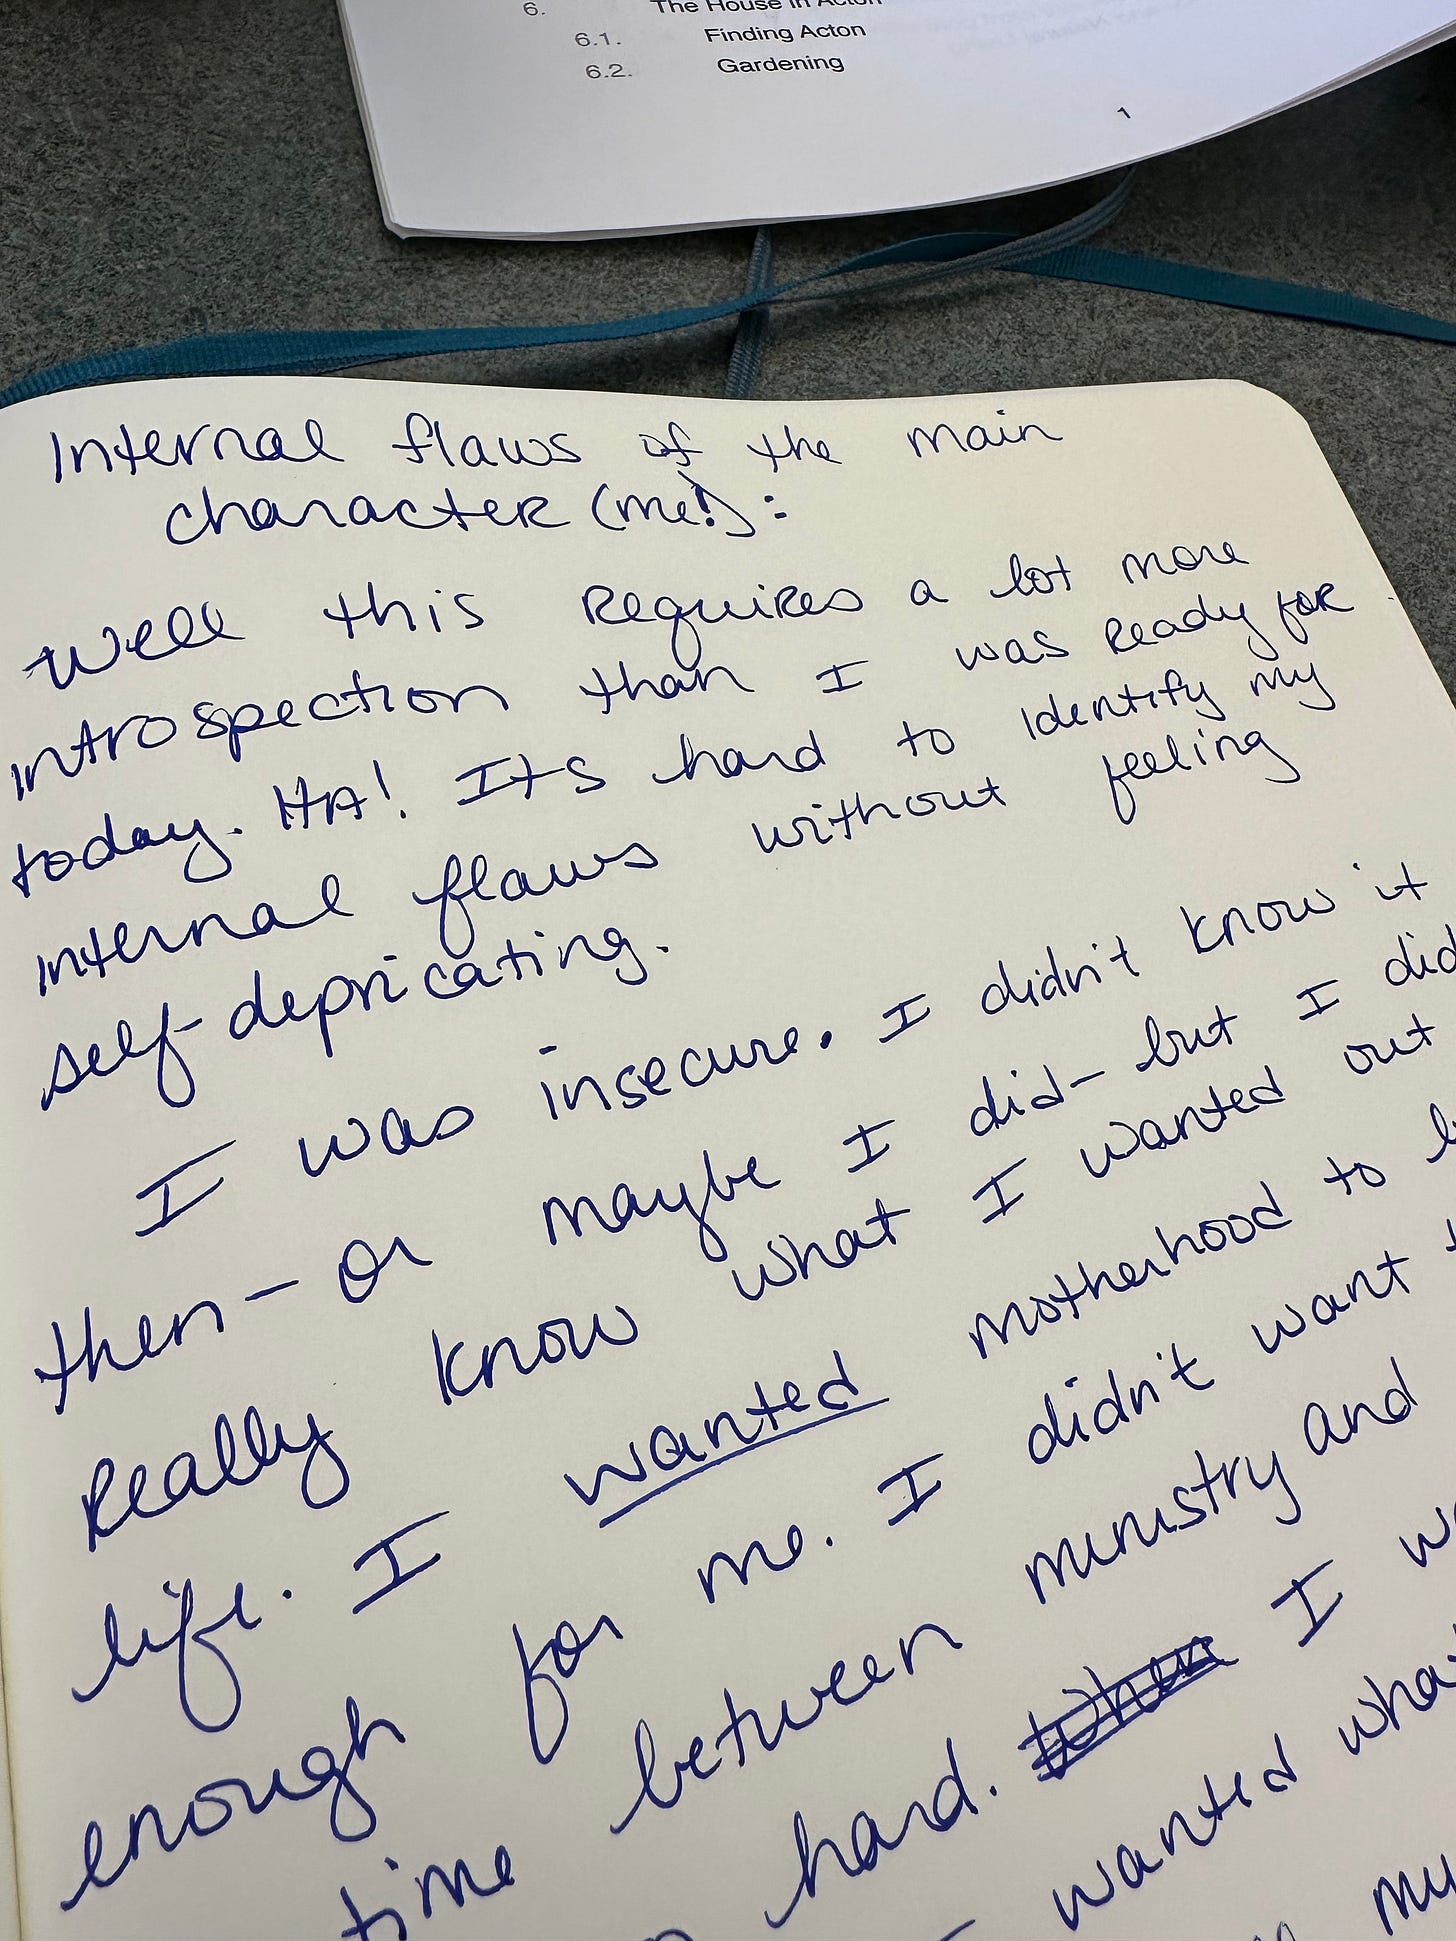 6. The House in Acton
6.1. Finding Acton
6.2. Gardening
1
Internal flaws of the main
character (me!):
Well this requires a lot more
introspection than I was ready for
today. HA! Its hard to identify my
internal flaws without feeling
self-depricating.
I was insecure. I didn't know it
then - or maybe I did - but I did
really know what I wanted out
life. I wanted motherhood to
enough for me. I didn't want
time between ministry and
hard. when I
wanted